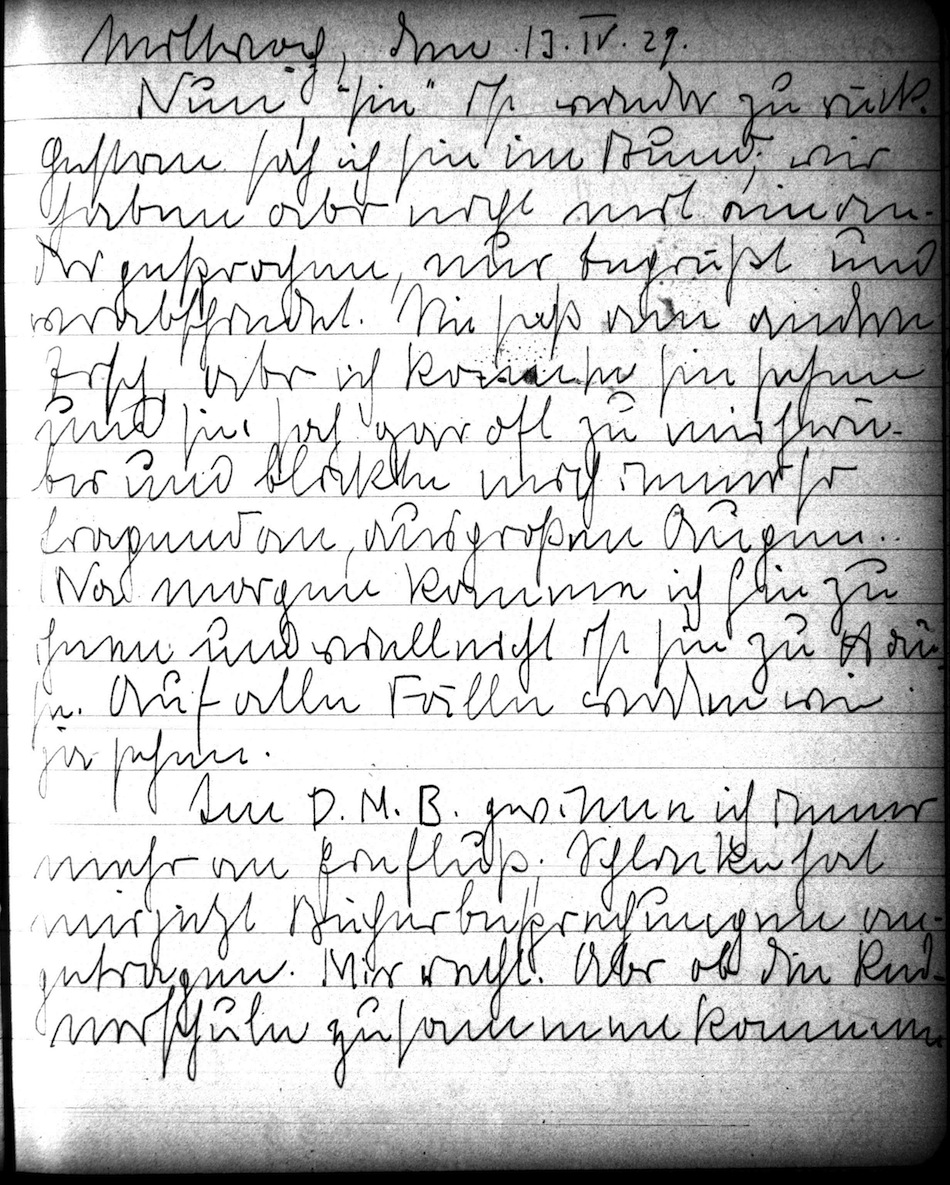 Mittwoch, den 13. IV. 29.
Nun, "sie" ist wieder zurück.
Gestern sah ich sie im Bund; wir
haben aber nicht mit einan-
der gesprochen, nur begrüßt und
verabschiedet. Sie saß am andern
Tisch, aber ich konnte sie sehen
und sie sah gar oft zu mir herü-
ber und blickte mich immer so
fragend an, aus großen Augen..
Na morgen komme ich hin zu
ihnen und vielleicht ist sie zu Hau-
se. Auf alle Fälle werden wir
ja sehen.
Im D.M.B. gewinne ich immer
mehr an Einfluß; Schlinke hat
mir jetzt Bücherbesprechungen an-
getragen. Mir recht. Aber ob die Red-
nerschule zusammenkommen